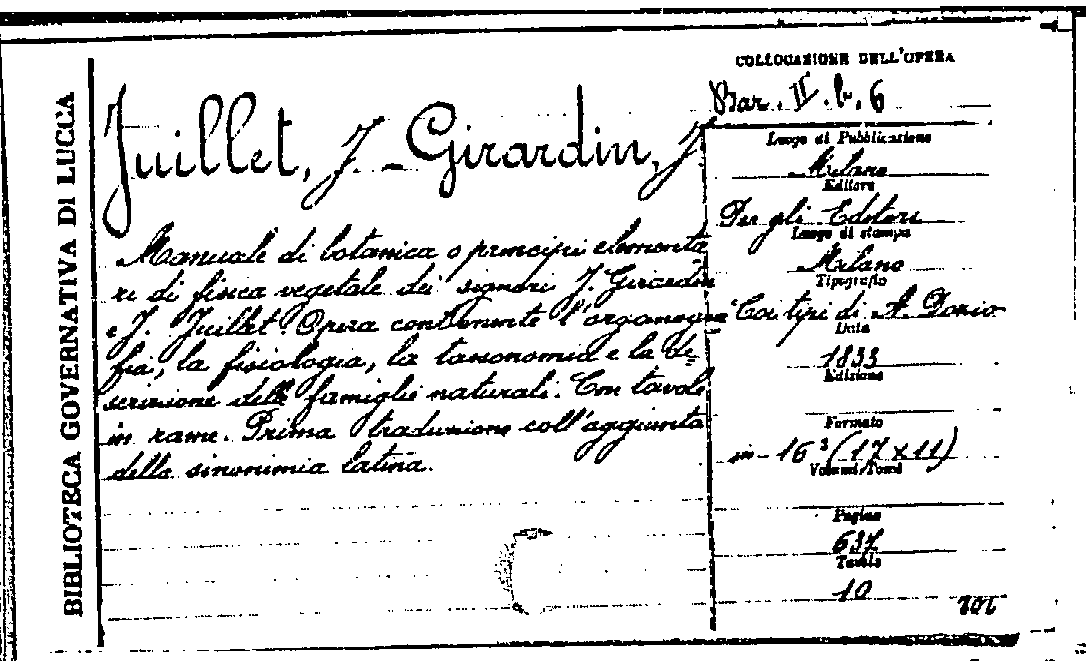 BIBLIOTECA GOVERNATIVA DI LUCCA
Juillet, J. - Girardin, J.
Manuale di botanica o principii elementa
ri di fisica vegetale dei signori J. Girardin
e J. Juillet. Opera contenente l'organogra
fia, la fisiologia, la tassonomia e la de=
scrizione delle famiglie naturali. Con tavole
in rame. Prima traduzione coll'aggiunta
della sinonimia latina.
COLLOCAZIONE DELL'OPERA
Bar. II. b. 6
Luogo di Pubblicazione
Milano
Editore
Per gli Editori
Luogo di stampa
Milano
Tipografia
Coi tipi di
Data
1833
Edizione
Formato
in-16° (17x11)
Volumi/Tomi
Pagine
637
Tavole
10